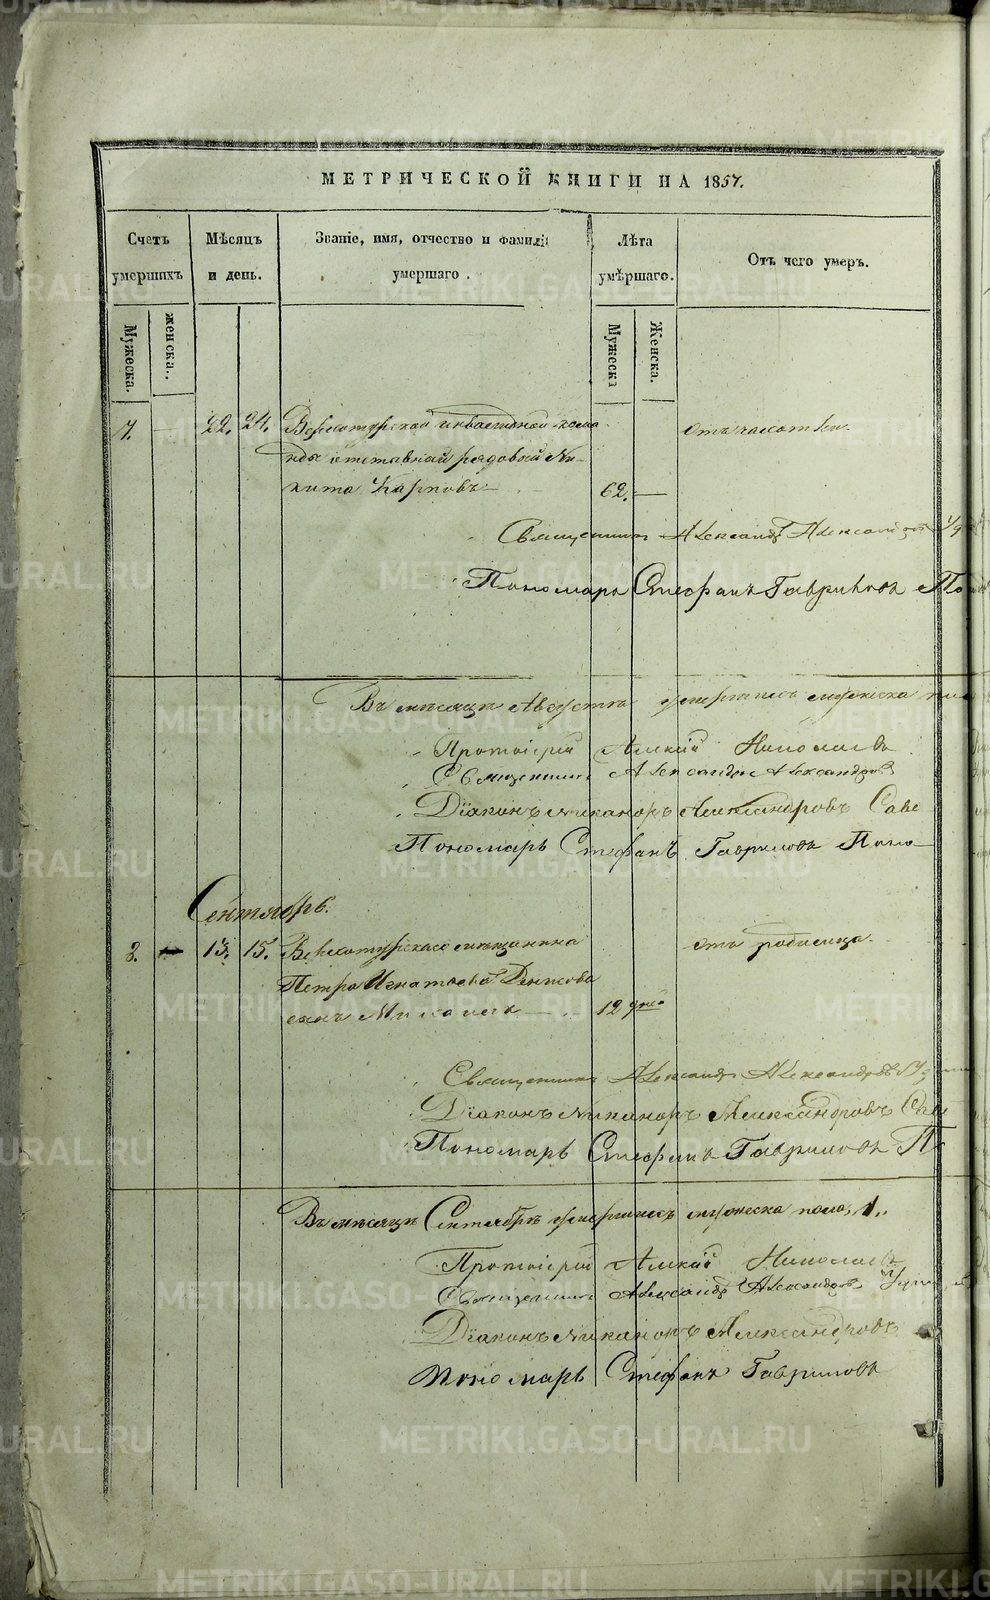 МЕТРИЧЕСКОЙ КНИГИ НА 1857.
Счетъ умершихъ
Мѣсяцъ и день.
Званіе, имя, отчество и фамилія умершаго.
Лѣта умершаго.
Отъ чего умеръ.
Мужеска.
женска.
Мужеска
Женска.
7. — 22. 24. Верхотурской инвалидной кома отъ чахотки.
нды отставной рядовой Ни-
кита Карповъ — 62. —
Священникъ Александръ Александровъ
Пономарь Стефанъ Гавриловъ По
Въ мѣсяцѣ Августѣ умершихъ мужеска пола
Протоіерей Алексій Николаевъ
Священникъ Александръ Александровъ
Діаконъ Никаноръ Александровъ Саве
Пономарь Стефанъ Гавриловъ Поно
Сентябрь.
8. — 13. 15. Верхотурскаго мѣщанина отъ родимца.
Петра Игнатьева
сынъ Николай — 12 дней
Священникъ Александръ Александровъ
Діаконъ Никаноръ Александровъ Саве
Пономарь Стефанъ Гавриловъ По
Въ мѣсяцѣ Сентябрѣ умершихъ мужеска пола, 1.
Протоіерей Алексій Николаевъ
Священникъ Александръ Александровъ
Діаконъ Никаноръ Александровъ
Пономарь Стефанъ Гавриловъ
METRIKI.GASO-URAL.RU